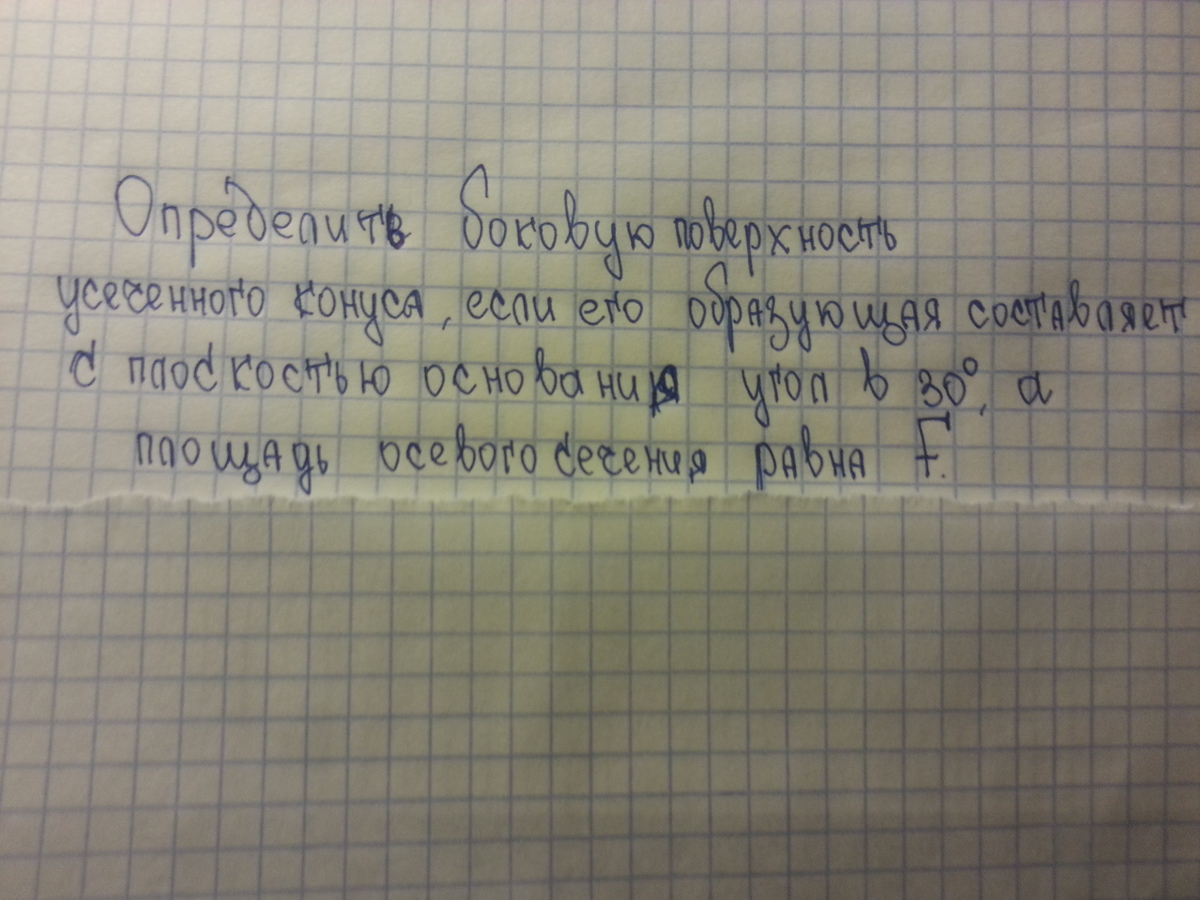 Определить боковую поверхность
усеченного конуса, если его образующая составляет
с плоскостью основания угол в 30°, а
площадь осевого сечения равна F.